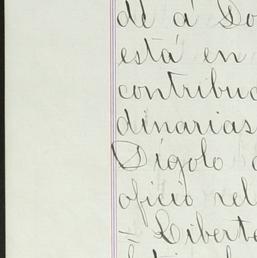 de á Do
está en
contribuc
dinarias
Dígolo
oficio rel
= Liberta